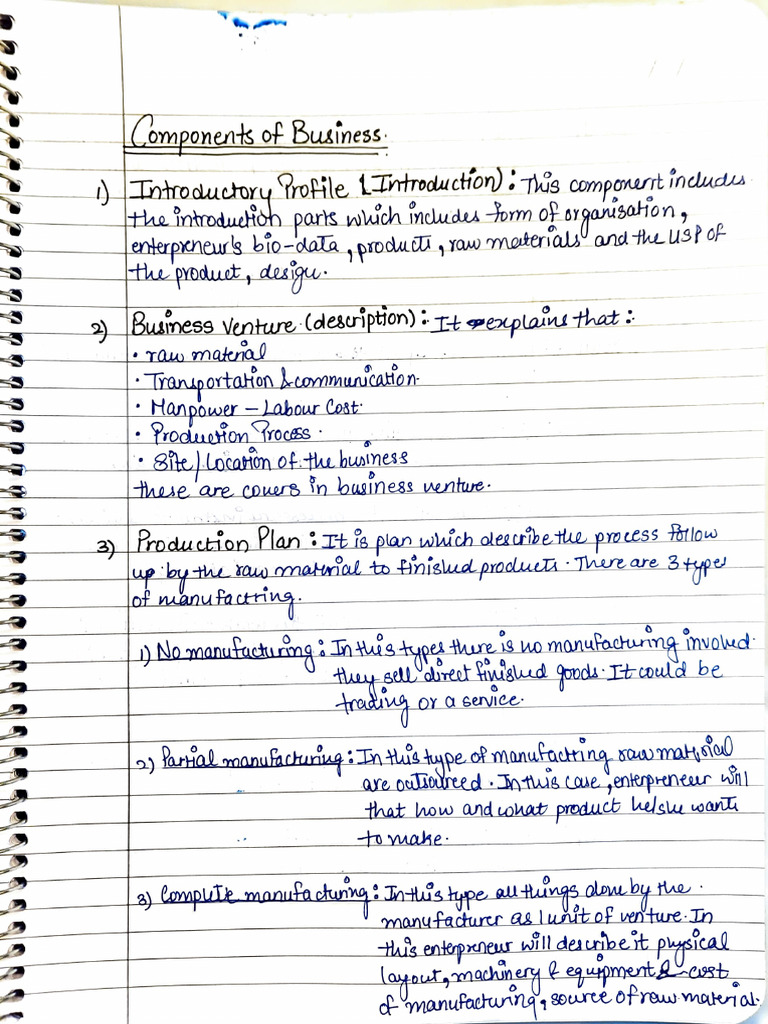 Components of Business.
1) Introductory Profile (Introduction): This component includes
the introduction parts which includes form of organisation,
enterpreneur's bio-data, products, raw materials and the USP of
the product, design.
2) Business venture (description): It explains that:
• raw material
• Transportation & communication.
• Manpower - Labour Cost.
• Production Process.
• Site/Location of the business
these are covers in business venture.
3) Production Plan: It is plan which describe the process follow
up by the raw material to finished products. There are 3 types
of manufactring.
1) No manufacturing: In this types there is no manufacturing involved.
they sell direct finished goods. It could be
trading or a service.
2) Partial manufacturing: In this type of manufactring raw material
are outsourced. In this case, enterpreneur will
that how and what product he/she wants
to make.
3) Complete manufacturing: In this type all things done by the
manufacturer as 1 unit of venture. In
this enterpreneur will describe it physical
layout, machinery & equipment & cost
of manufacturing, source of raw material.